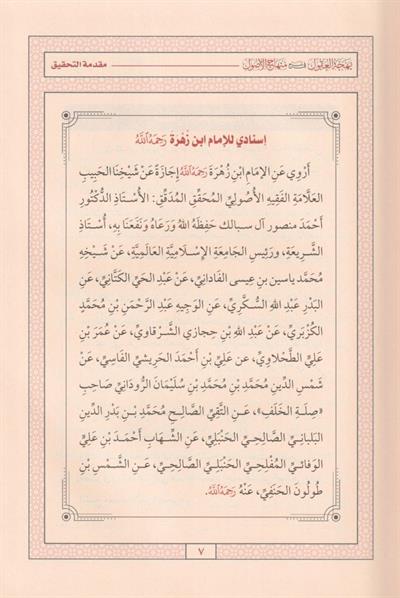 بهجة العقول في شرح منهاج الأصول
مقدمة التحقيق
إسنادي للإمام ابن زُهْرة رَحِمَهُ ٱللَّهُ
أَرْوِي عَنِ الإِمَامِ ابْنِ زُهْرَةَ رَحِمَهُ ٱللَّهُ إِجَازَةً عَنْ شَيْخِنَا الحَبِيبِ
العَلَّامَةِ الفَقِيهِ الأُصُولِيِّ المُحَقِّقِ المُدَقِّقِ: الأُسْتَاذِ الدُّكْتُورِ
أَحْمَدَ منصور آل سبالك حَفِظَهُ اللهُ وَرَعَاهُ وَنَفَعَنَا بِهِ، أُسْتَاذِ
الشَّرِيعَةِ، ورَئِيسِ الجَامِعَةِ الإِسْلَامِيَّةِ العَالَمِيَّةِ، عَنْ شَيْخِهِ
مُحَمَّد ياسين بن عِيسى الفَادَانِيِّ، عَنْ عَبْدِ الحَيِّ الكَتَّانِيِّ، عَنِ
البَدْرِ عَبْدِ اللهِ السُّكَّرِيِّ، عَنِ الوَجِيهِ عَبْدِ الرَّحْمَنِ بْنِ مُحَمَّدٍ
الكُزْبَرِيِّ، عَنْ عَبْدِ اللهِ بْنِ حِجازي الشَّرْقاوِي، عَنْ عُمَرَ بْنِ
عَلِيٍّ الطَّحْلَاوِيِّ، عن عَلِيِّ بْنِ أَحْمَدَ الحَرِيشِيِّ الفَاسِيِّ، عَنْ
شَمْسِ الدِّينِ مُحَمَّدِ بْنِ مُحَمَّدِ بْنِ سُلَيْمَانَ الرُّودَانِيِّ صَاحِبِ
«صِلَةِ الخَلَفِ»، عَنِ التَّقِيِّ الصَّالِحِ مُحَمَّدِ بْنِ بَدْرِ الدِّينِ
البَلبانِيِّ الصَّالِحِيِّ الحَنْبَلِيِّ، عَنِ الشِّهَابِ أَحْمَدَ بْنِ عَلِيٍّ
الوَفائِيِّ المُفْلِحِيِّ الحَنْبَلِيِّ الصَّالِحِيِّ، عَنِ الشَّمْسِ بْنِ
طُولُونَ الحَنَفِيِّ، عَنْهُ رَحِمَهُ ٱللَّهُ.
٧